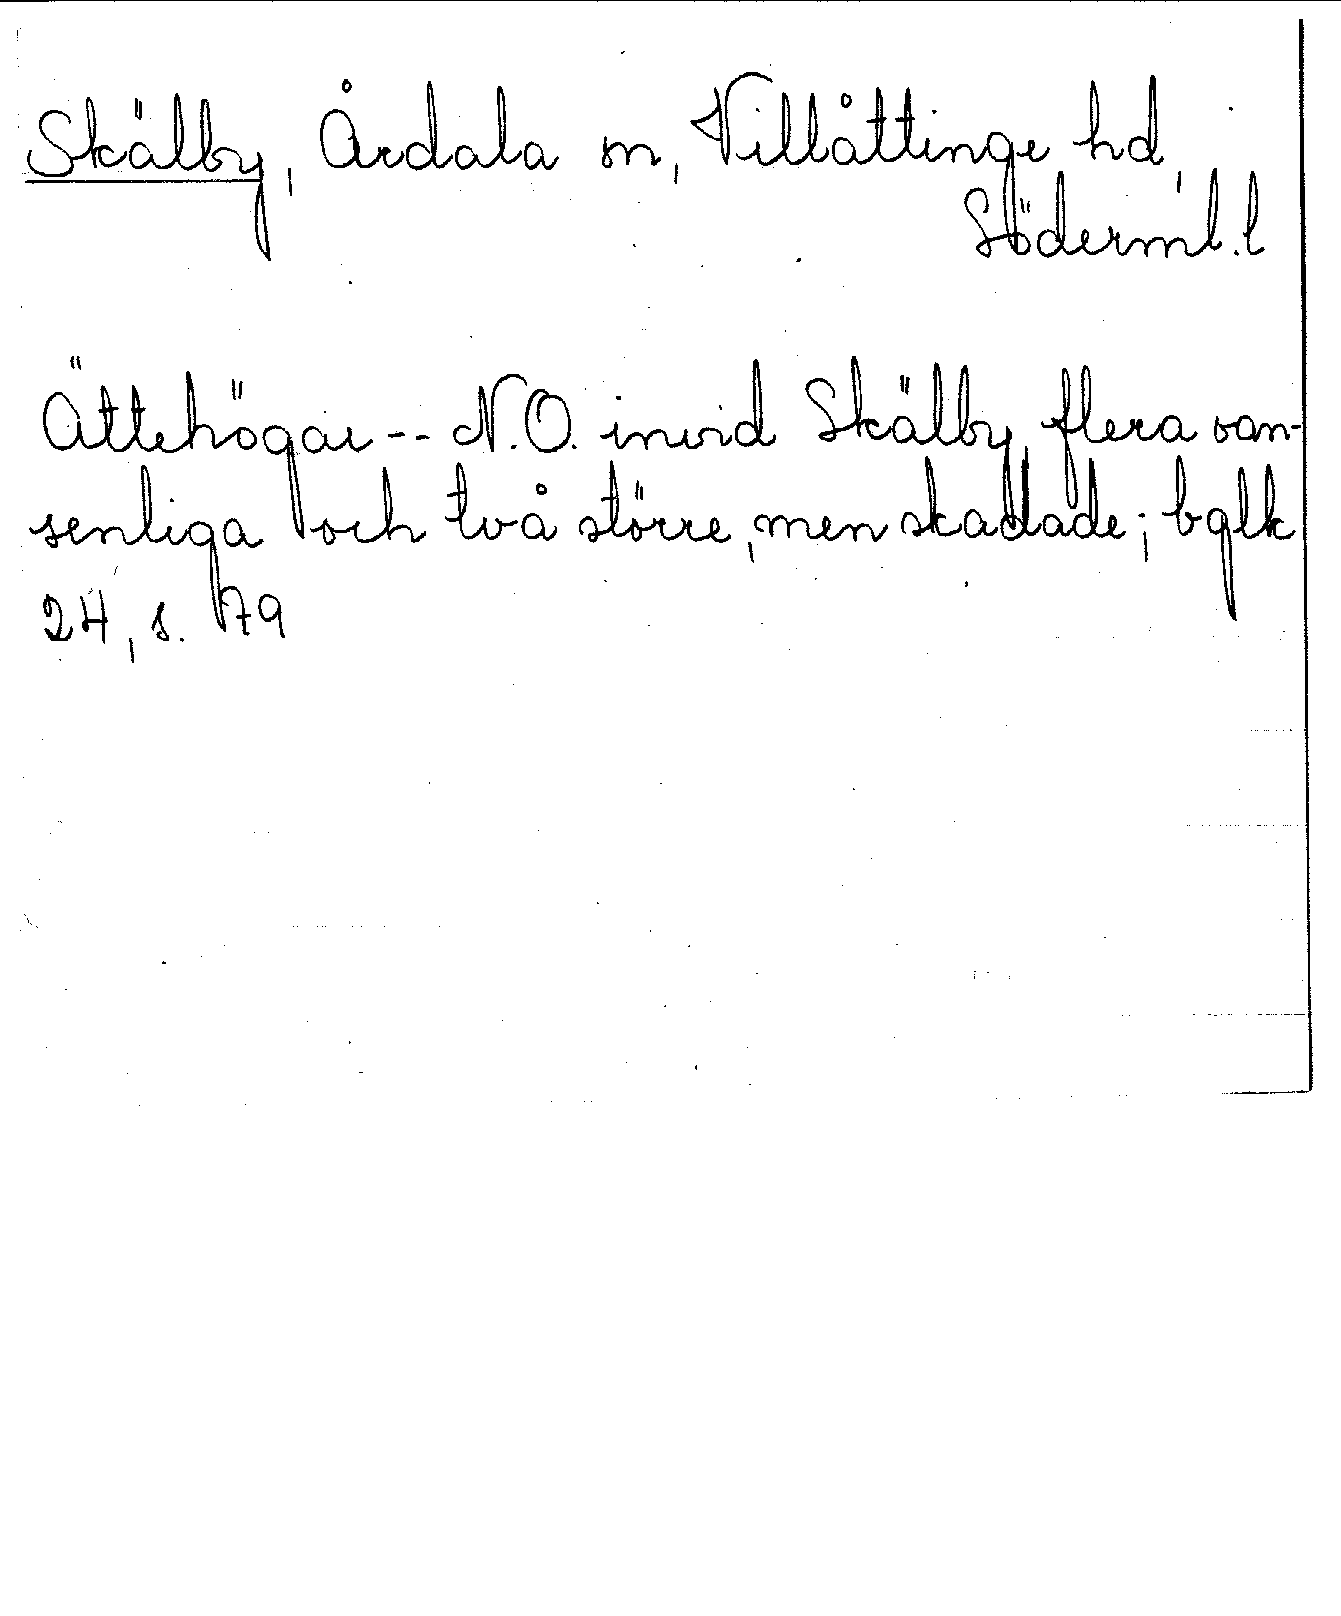 Skälby, Årdala sn, Villåttinge hd,
Söderml. l
Ättehögar -- N.O. invid Skälby flera van-
senliga och två större, men skadade; bglk
24, s. 79